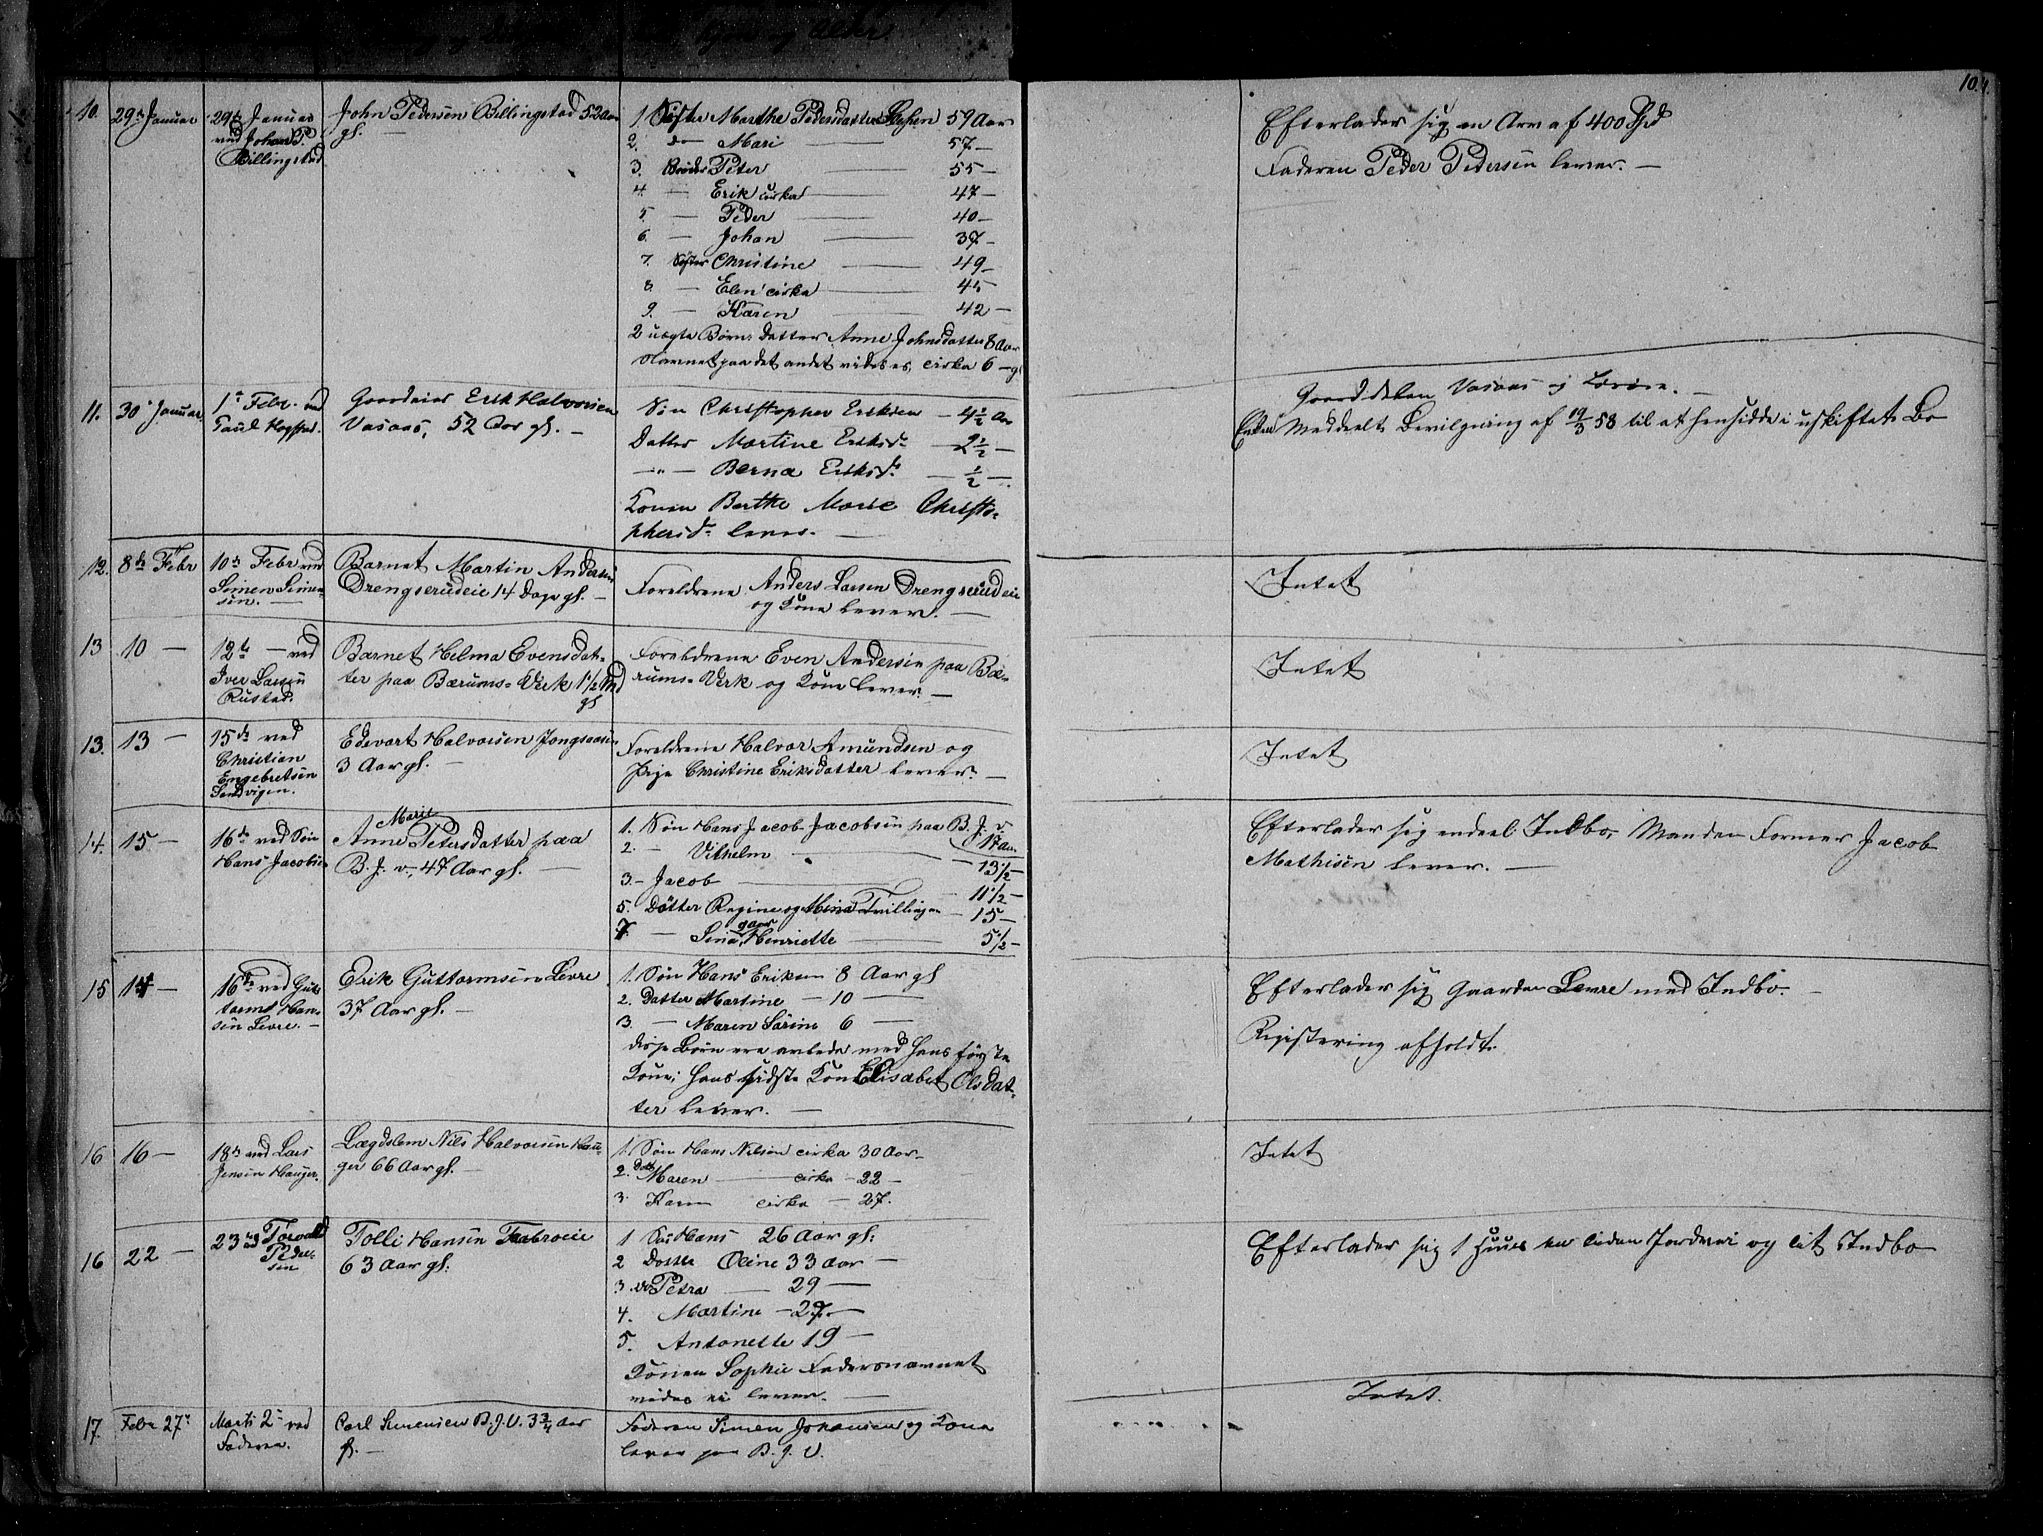 og Alder
104.
10.
29de Januar
29de Januar
ved Johan P.
Billingstad
John Pedersen Billingstad 52 Aar
gl.
1. Søster Marthe Pedersdatter 59 Aar
2. do — Mari — 57 —
3. Broder Peter — 55 —
4. — Erik cirka — 47 —
5. — Peder — 40 —
6. — Johan — 37 —
7. Søster Christine — 49 —
8. — Elen cirka — 45 —
9. — Karen — 42 —
2 uægte Børn: Datter Anne Johnsdatter 8 Aar
Navnet paa det andet vides ei, cirka 6 — gl
Efterlader sig en Arv af 400 Spd
Faderen Peder Pedersen lever. —
11.
30te Januar
1ste Febr. ved
Paul Hogstad.
Gaardeier Erik Halvorsen
Vasaas, 52 Aar gl. —
Søn Christopher Eriksen — 4 1/2 Aar
Datter Martine Eriksd. — 2 1/2 —
— " — Berna Eriksd. — 1/2 —
Konen Berthe Marie Christo-
phersd. lever. —
Gaarddelen Vasaas og Løvøre. —
Enken Meddeelt Bevilgning af 19/3 58 til at hensidde i uskiftet Bo
12.
8de Febr
10de Febr ved
Simen Simen-
sen. —
Barnet Martin Andersen
Drengsrudeie 14 Dage gl. —
Forældrene Anders Larsen Drengsrudeie
og Kone lever. —
Intet
13
10 —
12te — ved
Iver Larsen
Rustad.
Barnet Helma Evensdat-
ter paa Bærums-Verk 1 1/2 Md
gl
Forældrene Even Andersen paa Bæ-
rums-Verk og Kone lever. —
Intet
13.
13 —
15de ved
Christian
Engebretsen
Sandvigen.
Edevart Halvorsen Jongsaasen
3 Aar gl. —
Forældrene Halvor Amundsen og
Pige Christine Eriksdatter lever. —
Intet
14.
15 —
16de ved Søn
Hans Jacobsen
Marie
Anne Petersdatter paa
B. J. v., 47 Aar gl. —
1. Søn Hans Jacob Jacobsen paa B. J. v.
17 Aar
2. — Vilhelm — 13 1/2 —
3 — Jacob — 11 1/2 —
5. Døtter Regine og Mina Tvillinger — 15 —
7. — Sina Henriette — 5 1/2 —
Efterlader sig endeel Indbo, Manden Former Jacob
Mathisen lever. —
15
14 —
16de ved Gut-
torm Han-
sen Levre. —
Erik Guttormsen Levre
37 Aar gl. —
1. Søn Hans Eriksen 8 Aar gl
2. Datter Martine — 10 —
3. — Maren Sørine 6 —
disse Børn ere avlede med hans første
Kone; hans sidste Kone Elisabet Olsdat-
ter lever. —
Efterlader sig Gaarden Levre med Indbo. —
Registering afholdt.
16
16 —
18de ved Lars
Jensen Hauger.
Lægdslem Nils Halvorsen Hau-
ger 66 Aar gl. —
1. Søn Hans Nilsen cirka 30 Aar —
2. Datt Maren — cirka — 22 —
3. Karen cirka — 27.
Intet
16
22 —
23 ved Torvald
Peder-
sen
Tolli Hansen Feabroeie
63 Aar gl.
1 Søn Hans 26 Aar gl.
2 Datter Oline 33 Aar —
3. do Petra — 29 —
4. Martine — 27 —
5. Antonette 19 —
Konen Sophie Fadersnavnet
vides ei lever. —
Efterlader sig 1 Huus en liden Jordvei og lit Indbo
17.
Febr 27de
Marts 2de ved
Faderen.
Carl Simensen B. J. V. 3 3/4 Aar
gl. —
Faderen Simen Johansen og Kone
lever paa B. J. V.
Intet.